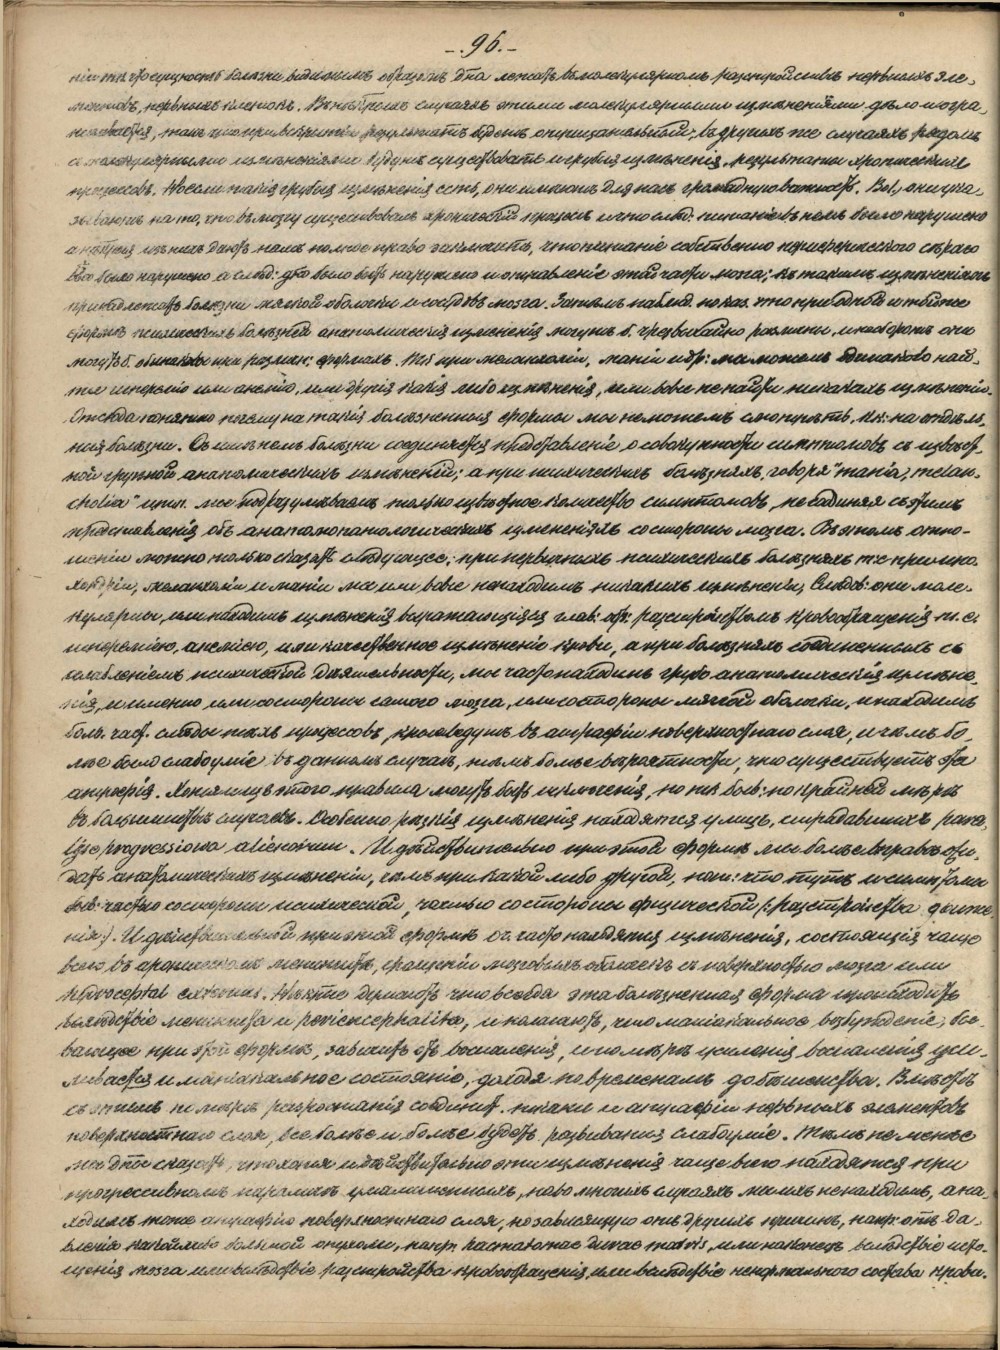 -. 96. -
нія т.к. что сущность болезни видимымъ образомъ дна лежать въ молекулярномъ разстройствѣ нервныхъ эле-
ментовъ, нервныхъ клетокъ. Въ нѣкотрыхъ случаяхъ этими молекулярными измѣненіями дѣло и огра-
ничивается, такъ что при вскрытіи результатъ будетъ отрицательный; въ другихъ же случаяхъ рядомъ
съ молекулярными измѣненіями будутъ существовать и грубыя измѣненія, результаты хроническихъ
процессовъ. Но если такія грубыя измѣненія есть, они имѣютъ для насъ громадную важность. Во 1, они ука-
зываютъ на то, что въ мозгу существовалъ хроническій процессъ и что слѣд: питаніе въ немъ было нарушено
а нѣкотрыя изъ нихъ даютъ намъ полное право заключить, что питаніе собственно периферическаго сѣраго
в-ва было нарушено, а слѣд: д-но было быть нарушено и отправленіе этой части мозга; къ такимъ измѣненіямъ
принадлежатъ болѣзни мягкой оболочки и сосудовъ мозга. Затѣмъ наблюд. показ. что при одной и той же
формѣ психическихъ болѣзней анатомическія измѣненія могутъ б. чрезвычайно различны, и наоборотъ они
могутъ б. одинаковы при различн: формахъ. Т.ч. при меланхоліи, маніи и др: мы можемъ одинаково най-
ти гиперемію или анемію, или другія какія либо измѣненія, или вовсе не найти никакихъ измѣненій.
Отсюда понятно почему на такія болѣзненныя формы мы не можемъ смотрѣть, к.к: на отдѣль-
ныя болѣзни. Съ именемъ болѣзни соединяется представленіе о совокупности симптомовъ съ извѣст-
ной группой анатомическихъ измѣненій; а при психическихъ болѣзняхъ, говоря "mania, melan-
cholia" и пр. мы подразумѣваемъ только извѣстное количество симптомовъ, не соединяя съ этимъ
представленія объ анатомопатологическихъ измененіяхъ со стороны мозга. Въ этомъ отно-
шеніи можно только сказать слѣдующее: при первичныхъ психическихъ болѣзняхъ т.е. при ипо-
хондріи, меланхоліи и маніи мы или вовсе не находимъ никакихъ измѣненій, слѣдов: они моле-
кулярны, или находимъ измѣненія выражающіяся глав: обр: разстройствомъ кровообращенія т.е.
гипереміею, анеміею, или качественное измѣненіе крови, а при болѣзняхъ соединенныхъ съ
ослабленіемъ психической дѣятельности, мы часто находимъ грубо анатомическія измѣне-
нія, и именно или со стороны самого мозга, или со стороны мягкой оболочки, и находимъ
больш. част. слѣды тѣхъ процессовъ, кои ведутъ къ атрофіи поверхностнаго слоя, и чѣмъ бо-
лѣе было слабоуміе въ данномъ случаѣ, тѣмъ болѣе вѣроятности, что существуетъ эта
атрофія. Хотя и изъ этого правила могутъ быть исключенія, но по крайней мѣрѣ
въ большинствѣ случаевъ. Особенно рѣзкія измѣненія находятся у лицъ, страдавшихъ para-
lyse progressiva alienorum. И дѣйствительно при этой формѣ мы болѣе вправѣ ожи-
дать анатомическихъ измѣненій, чѣмъ при какой либо другой, пот: что тутъ и симптомы
быв: частью со стороны психической, частью со стороны физической (: разстройства движе-
нія :). И дѣйствительно при этой формѣ оч. часто находятся измѣненія, состоящія чаще
всего въ хроническомъ менингитѣ, сращеніи мозговыхъ оболочекъ съ поверхностью мозга или
hydrocephal externus. Нѣкотрые думаютъ что всегда эта болѣзненная форма происходитъ
вслѣдствіе менингита и periencephalita, и полагаютъ, что маніакальное возбужденіе, бы-
вающее при этой формѣ, зависитъ отъ воспаленія, и по мѣрѣ усиленія воспаленія уси-
ливается и маніакальное состояніе, доходя по временамъ до бѣшенства. Вмѣстѣ
съ этимъ по мѣрѣ разростанія соединит. ткани и атрофіи нервныхъ элементовъ
поверхностнаго слоя, все болѣе и болѣе будетъ развиваться слабоуміе. Тѣмъ не менѣе
мы д-ны сказать, что хотя и дѣйствительно эти измѣненія чаще всего находятся при
прогрессивномъ параличѣ умалишенныхъ, но во многихъ случаяхъ мы ихъ не находимъ, а на-
ходимъ тоже атрофію поверхностнаго слоя, но зависящую отъ другихъ причинъ, напр. отъ да-
вленія какой либо большой опухоли, напр. haematomae durae matris, или наконецъ вслѣдствіе исто-
щенія мозга или вслѣдствіе разстройства кровообращенія, или вслѣдствіе ненормальнаго состава крови.